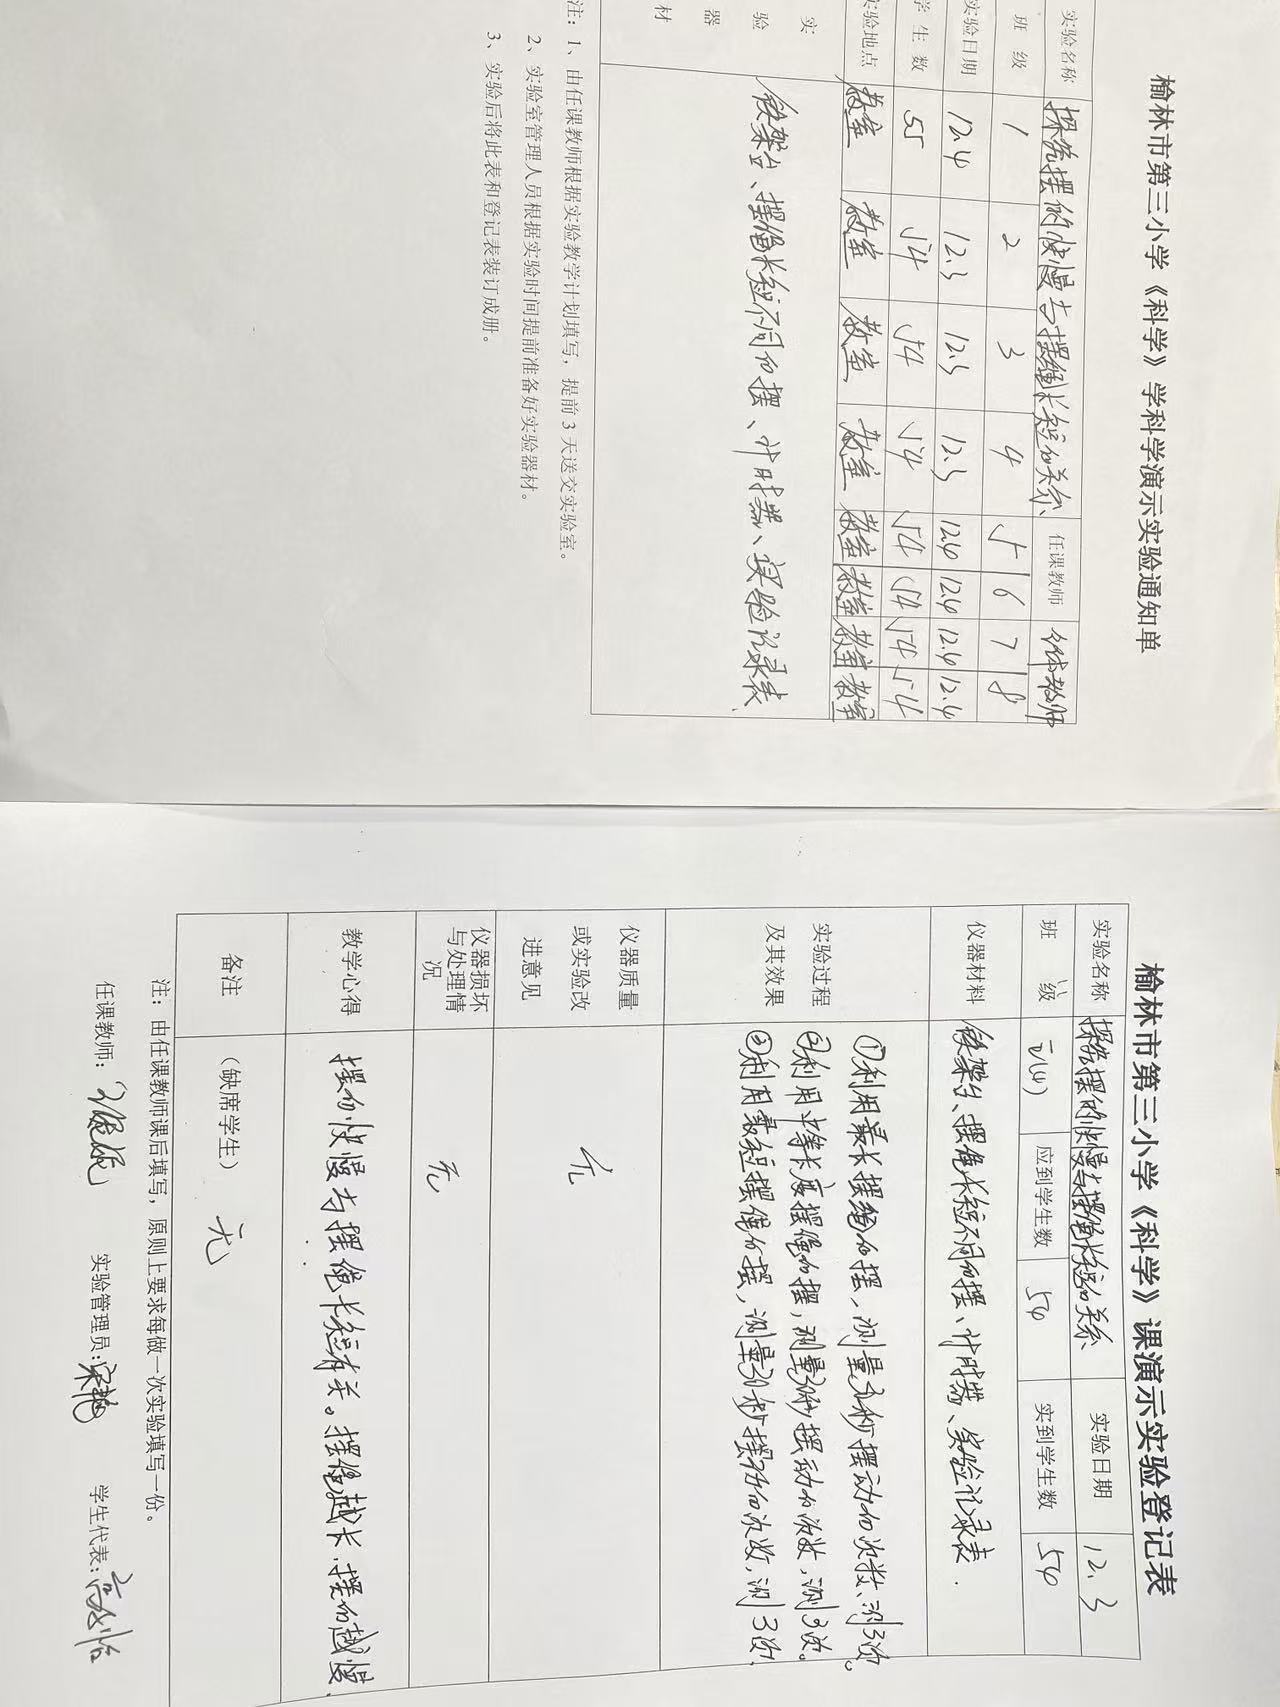 榆林市第三小学《科学》学科学演示实验通知单
实验名称 探究摆的快慢与摆绳长短的关系 任课教师 全体教师
班 级 1 2 3 4 5 6 7 8
实验日期 12.4 12.3 12.3 12.3 12.4 12.4 12.4 12.4
学 生 数 55 54 54 54 54 54 54 54
实验地点 教室 教室 教室 教室 教室 教室 教室 教室
实验器材 铁架台、摆绳长短不同的摆、计时器、实验记录表
注：1、由任课教师根据实验教学计划填写，提前 3 天送交实验室。
2、实验室管理人员根据实验时间提前准备好实验器材。
3、实验后将此表和登记表装订成册。
榆林市第三小学《科学》课演示实验登记表
实验名称 探究摆的快慢与摆绳长短的关系 实验日期 12.3
班 级 三(4) 应到学生数 54 实到学生数 54
仪器材料 铁架台、摆绳长短不同的摆、计时器、实验记录表.
实验过程
及其效果
①利用最长摆绳的摆、测量30秒摆动的次数、测3次。
②利用中等长度摆绳的摆，测量30秒摆动的次数，测3次。
③利用最短摆绳的摆，测量30秒摆动的次数，测3次.
仪器质量
或实验改
进意见
无
仪器损坏
与处理情
况
无
教学心得 摆的快慢与摆绳长短有关。摆绳越长.摆的越慢.
备注 （缺席学生） 无
注：由任课教师课后填写，原则上要求每做一次实验填写一份。
任课教师： 实验管理员: 学生代表: